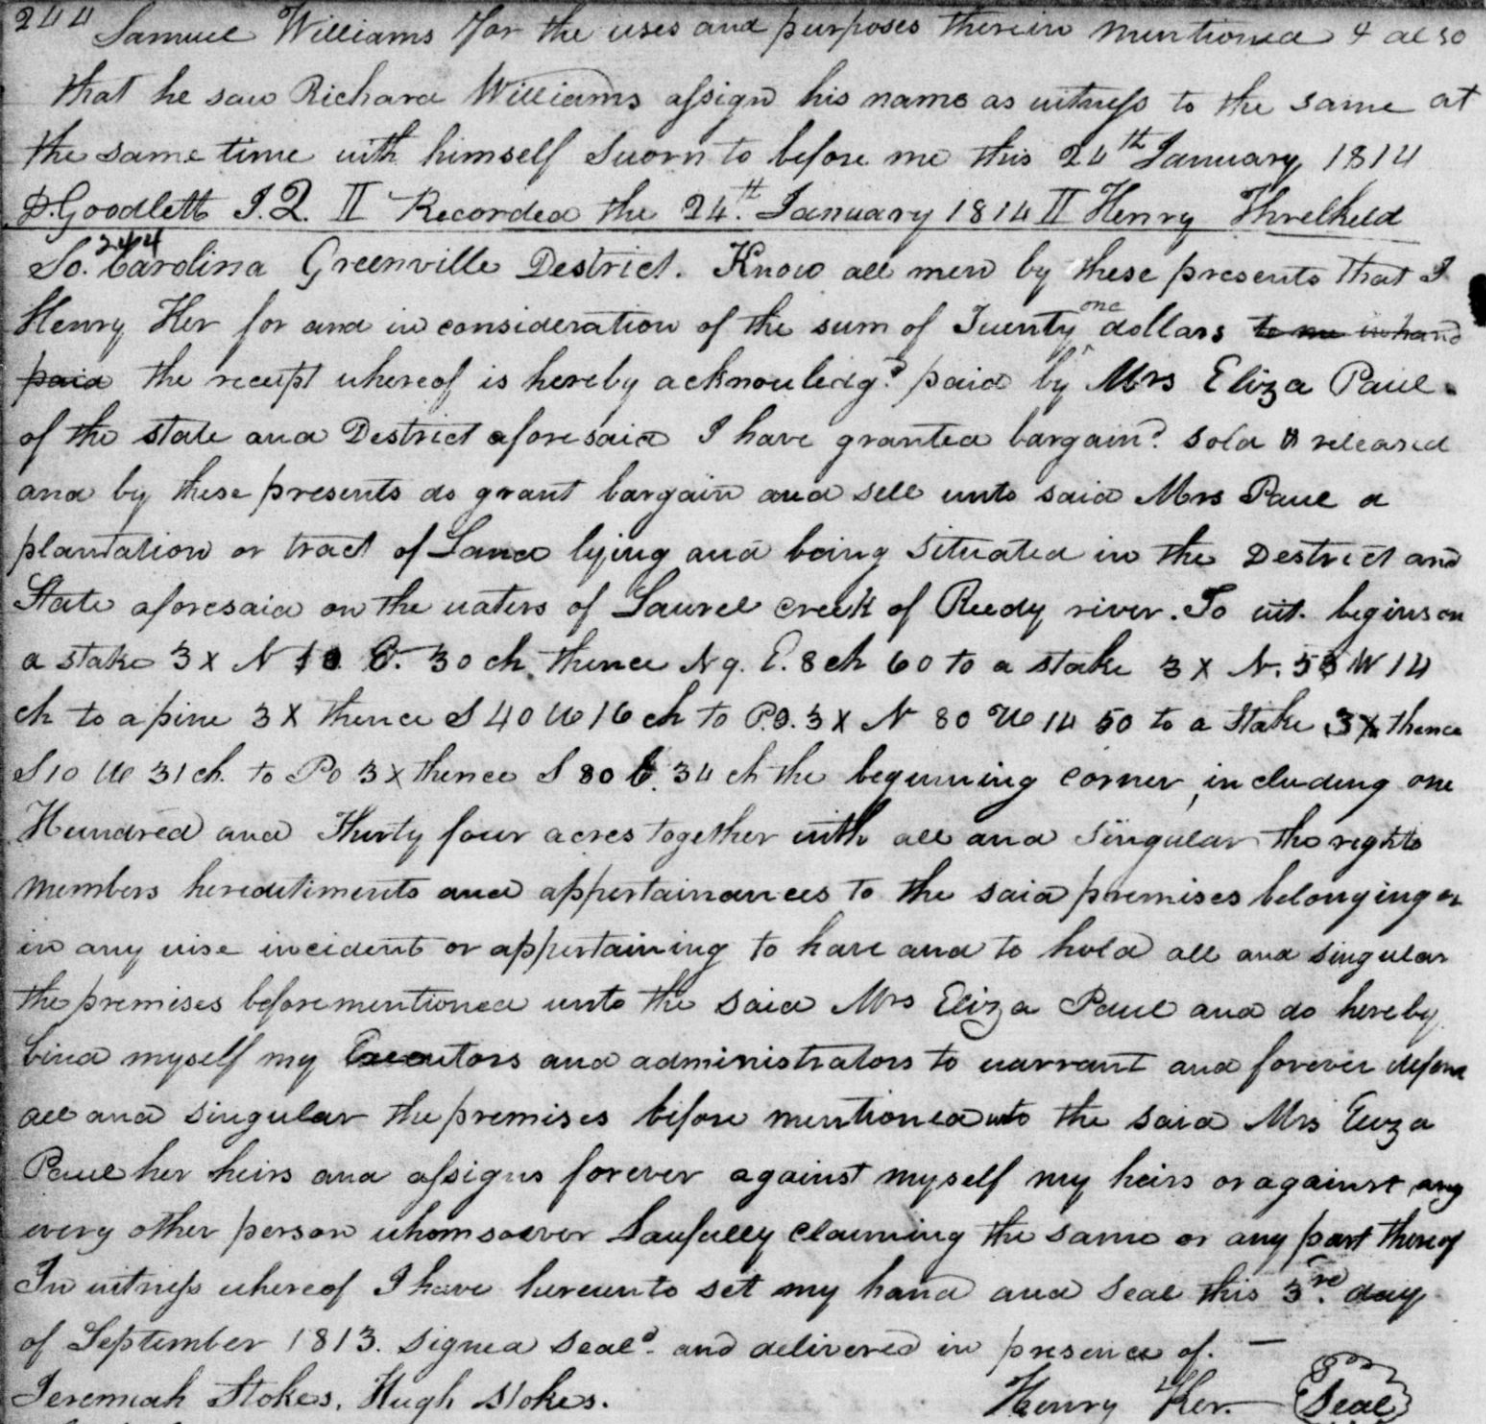 244 Samuel Williams for the uses and purposes therein mentioned & also
that he saw Richard Williams assign his name as witness to the same at
the same time with himself Sworn to before me this 24th January 1814
D. Goodlett J.Q. II Recorded the 24th January 1814 II Henry Threlkeld
244
So. Carolina Greenville District. Know all men by these presents that I
Henry Her for and in consideration of the sum of Twenty one dollars to me in hand
paid the receipt whereof is hereby acknowledg.d paid by Mrs Eliza Paul
of the state and District aforesaid I have granted bargain.d sold & released
and by these presents do grant bargain and sell unto said Mrs Paul a
plantation or tract of Land lying and being situated in the District and
State aforesaid on the waters of Laurel creek of Reedy river. To wit. begins on
a stake 3x N 10 E. 30 ch thence N 9. E. 8 ch 60 to a stake 3x N. 53 W 14
ch to a pine 3X thence S 40 W 16 ch to P.O. 3x N 80 W 14 50 to a Stake 3x thence
S 10 W 31 ch. to Po 3x thence S 80 E. 34 ch the beginning corner, including one
Hundred and Thirty four acres together with all and singular the rights
members hereditiments and appertainances to the said premises belonging or
in any wise incident or appertaining to have and to hold all and singular
the premises beforementioned unto the said Mrs Eliza Paul and do hereby
bind myself my Executors and administrators to warrant and forever defend
all and singular the premises before mentioned unto the said Mrs Eliza
Paul her heirs and assigns forever against myself my heirs or against any
every other person whomsoever Lawfully claiming the same or any part thereof
In witness whereof I have hereunto set my hand and seal this 3rd day
of September 1813. signed seal.d and delivered in presence of. —
Jeremiah Stokes. Hugh Stokes. Henry Her. Seal